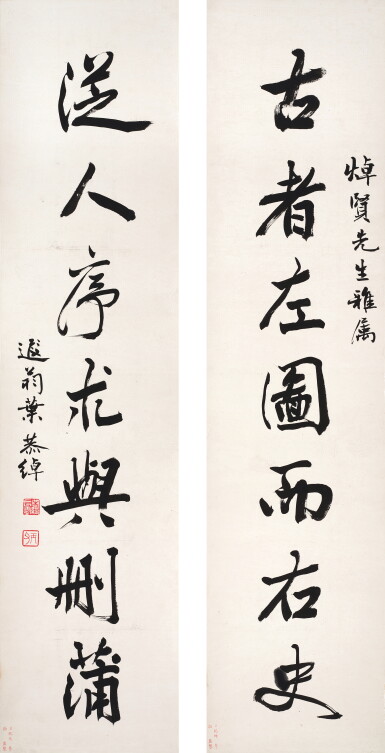 焯賢先生雅属
古者左圖而右史
從人序求與刪蒲
遐翁葉恭綽